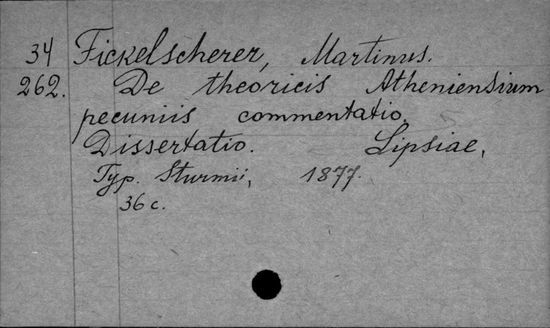 34 Fickelscherer, Martinus.
262. De theoricis Atheniensium
pecuniis commentatio.
Dissertatio. Lipsiae,
Typ. Sturmii, 1877.
36 c.